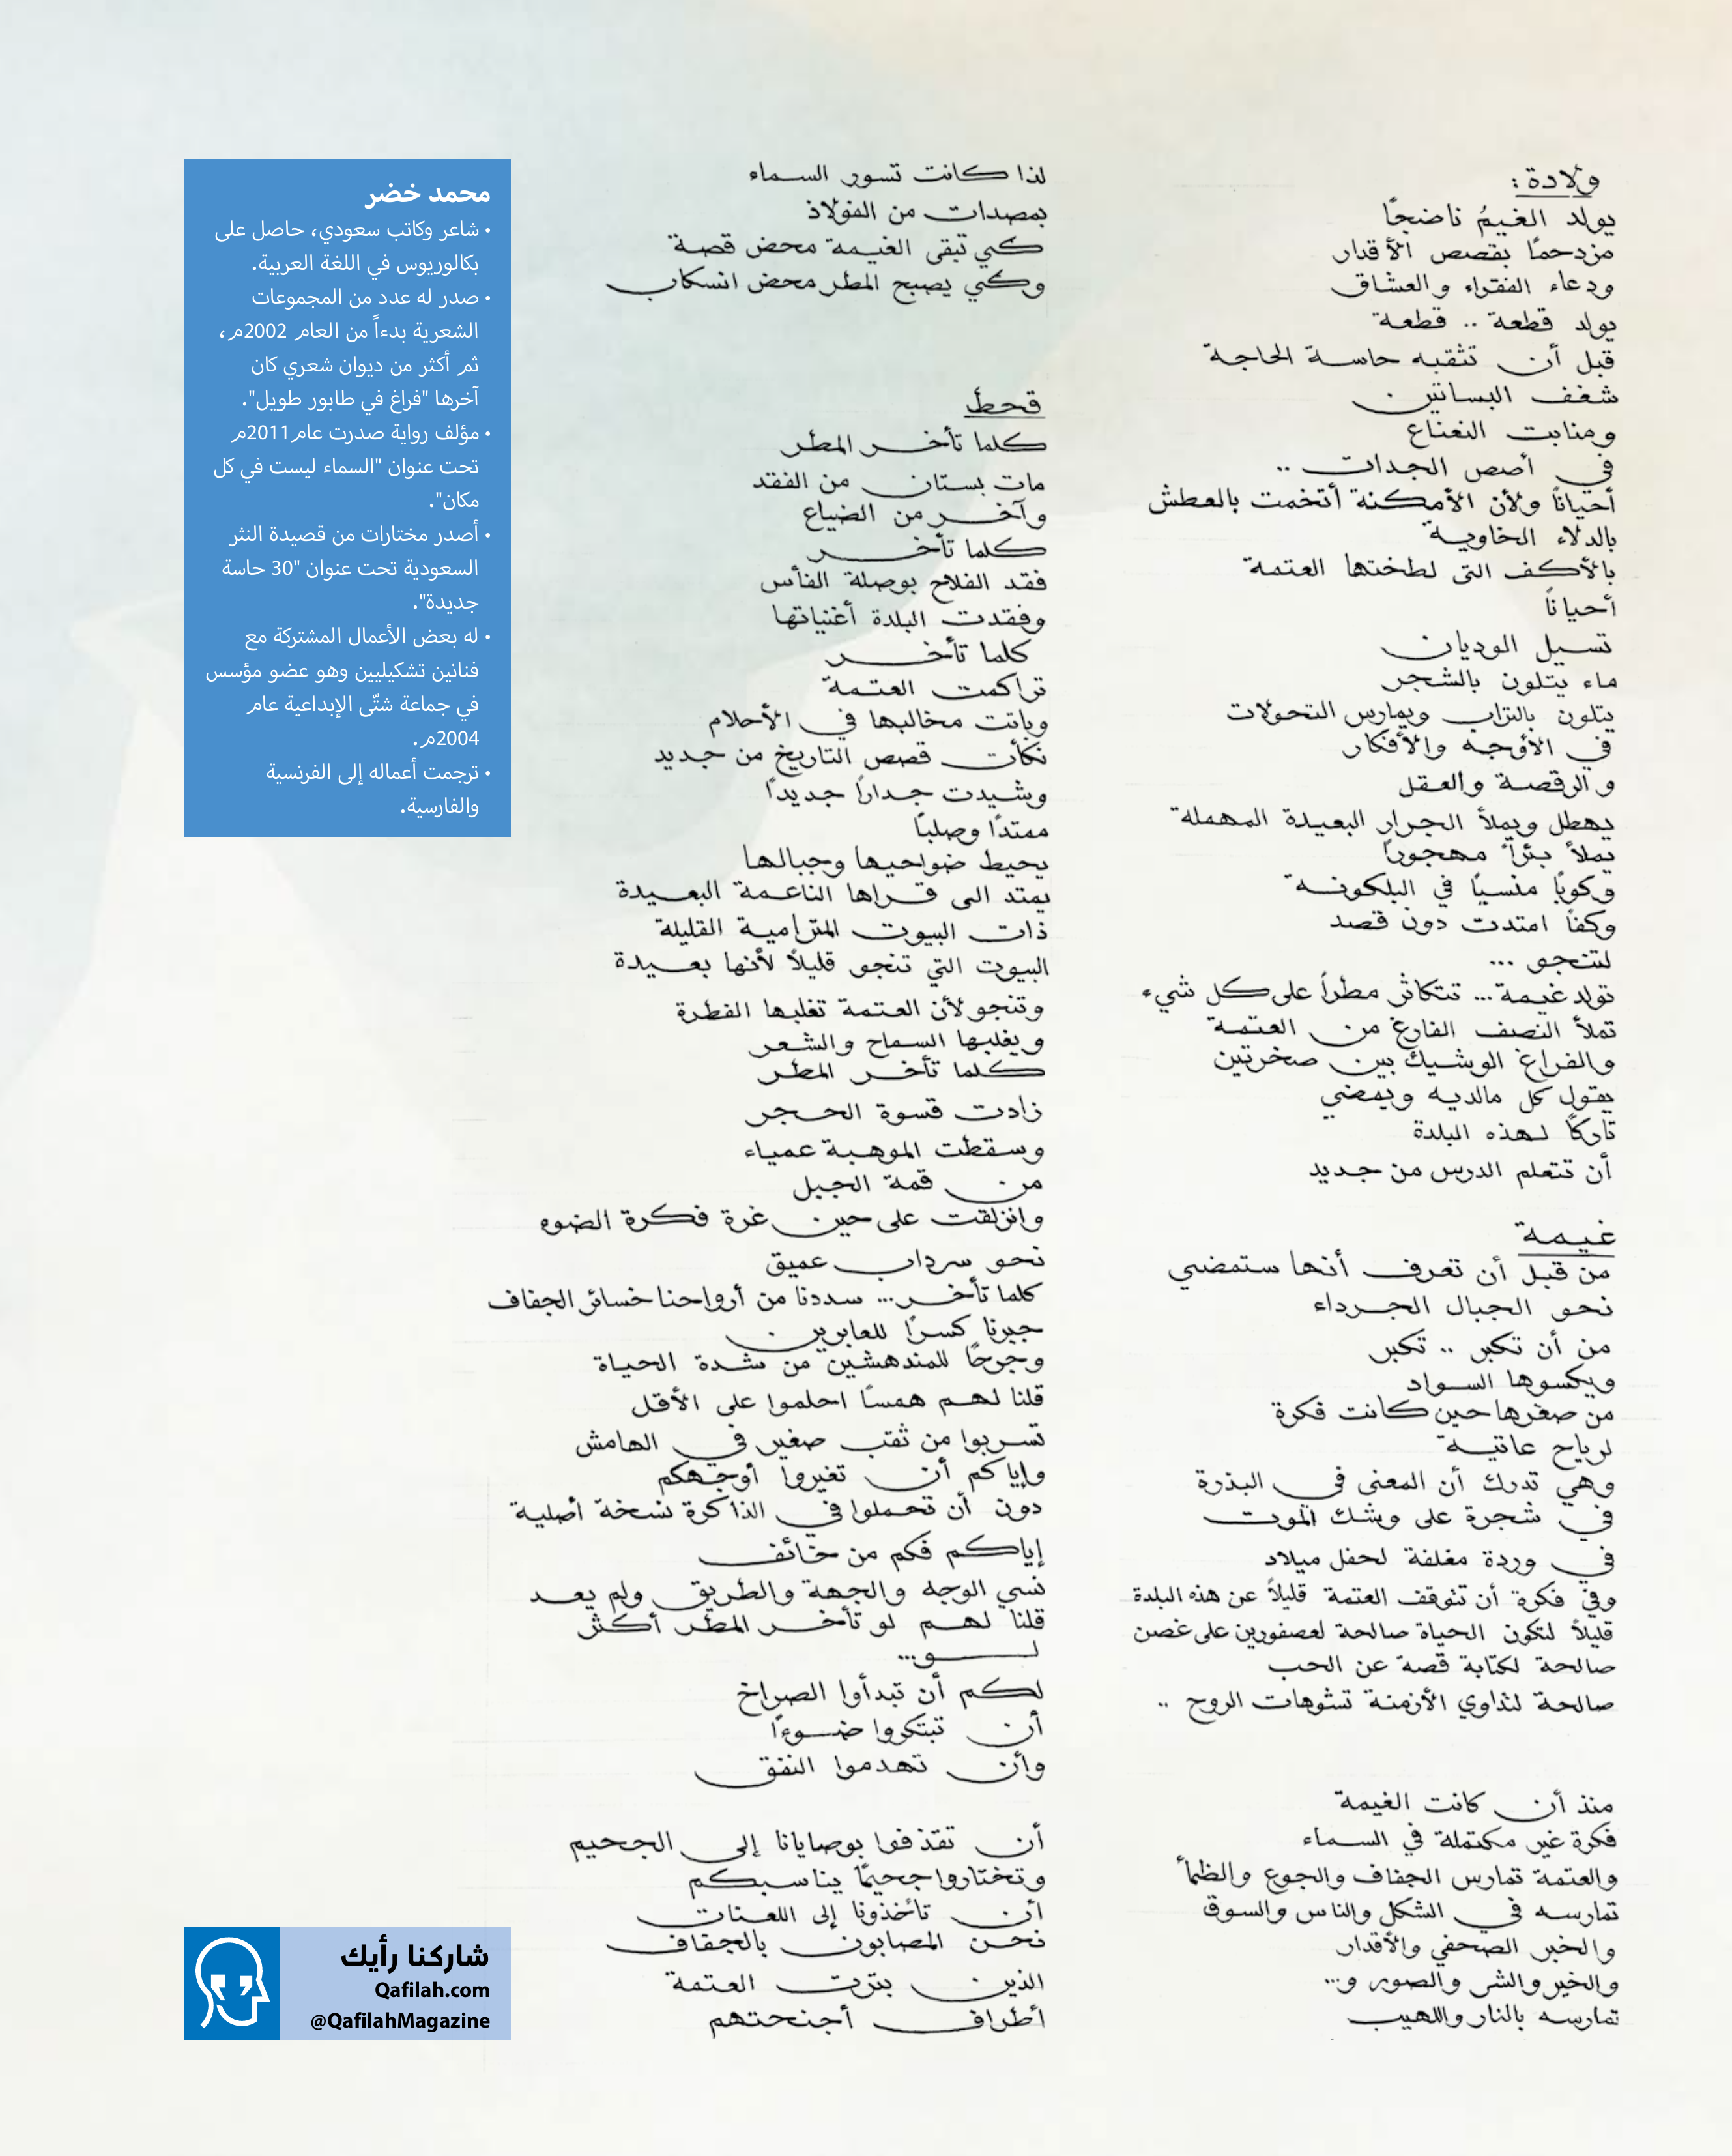 ولادة:
يولد الغيمُ ناضجًا
مزدحمًا بقصص الأقدار
ودعاء الفقراء والعشاق
يولد قطعة .. قطعة
قبل أن تثقبه حاسة الحاجة
شغف البساتين
ومنابت النعناع
في أصص الجدات ..
أحيانًا ولأن الأمكنة أتخمت بالعطش
بالدلاء الخاوية
بالأكف التى لطختها العتمة
أحيانًا
تسيل الوديان
ماء يتلون بالشجر
يتلون بالتراب ويمارس التحولات
في الأوجه والأفكار
والرقصة والعقل
يهطل ويملأ الجرار البعيدة المهملة
يملأ بئرًا مهجورًا
وكوبًا منسيًا في البلكونة
وكفًا امتدت دون قصد
لتنجو ...
تولد غيمة... تتكاثر مطرًا على كل شيء
تملأ النصف الفارغ من العتمة
والفراغ الوشيك بين صخرتين
يقول كل مالديه ويمضي
تاركًا لهذه البلدة
أن تتعلم الدرس من جديد
غيمة
من قبل أن تعرف أنها ستمضي
نحو الجبال الجرداء
من أن تكبر .. تكبر
ويكسوها السواد
من صغرها حين كانت فكرة
لرياح عاتية
وهي تدرك أن المعنى في البذرة
في شجرة على وشك الموت
في وردة مغلفة لحفل ميلاد
وفي فكرة أن تتوقف العتمة قليلاً عن هذه البلدة
قليلاً لتكون الحياة صالحة لعصفورين على غصن
صالحة لكتابة قصة عن الحب
صالحة لتداوي الأزمنة تشوهات الروح ..
منذ أن كانت الغيمة
فكرة غير مكتملة في السماء
والعتمة تمارس الجفاف والجوع والظمأ
تمارسه في الشكل والناس والسوق
والخبر الصحفي والأقدار
والخير والشر والصور و...
تمارسه بالنار واللهيب
لذا كانت تسور السماء
بمصدات من الفولاذ
كي تبقى الغيمة محض قصة
وكي يصبح المطر محض انسكاب
قحط
كلما تأخر المطر
مات بستان من الفقد
وآخر من الضياع
كلما تأخر
فقد الفلاح بوصلة الفأس
وفقدت البلدة أغنياتها
كلما تأخر
تراكمت العتمة
وباتت مخالبها في الأحلام
نكأت قصص التاريخ من جديد
وشيدت جدارًا جديدًا
ممتدًا وصلبًا
يحيط ضواحيها وجبالها
يمتد الى قراها الناعمة البعيدة
ذات البيوت المترامية القليلة
البيوت التي تنجو قليلاً لأنها بعيدة
وتنجو لأن العتمة تغلبها الفطرة
ويغلبها السماح والشعر
كلما تأخر المطر
زادت قسوة الحجر
وسقطت الموهبة عمياء
من قمة الجبل
وانزلقت على حين غرة فكرة الضوء
نحو سرداب عميق
كلما تأخر... سددنا من أرواحنا خسائر الجفاف
جبرنا كسرًا للعابرين
وجرحًا للمندهشين من شدة الحياة
قلنا لهم همسًا احلموا على الأقل
تسربوا من ثقب صغير في الهامش
وإياكم أن تغيروا أوجهكم
دون أن تحملوا في الذاكرة نسخة أصلية
إياكم فكم من خائف
نسي الوجه والجهة والطريق ولم يعد
قلنا لهم لو تأخر المطر أكثر
لو...
لكم أن تبدأوا الصراخ
أن تبتكروا ضوءًا
وأن تهدموا النفق
أن تقذفوا بوصايانا إلى الجحيم
وتختاروا جحيمًا يناسبكم
أن تأخذونا إلى اللعنات
نحن المصابون بالجفاف
الذين بترت العتمة
أطراف أجنحتهم
محمد خضر
• شاعر وكاتب سعودي، حاصل على
بكالوريوس في اللغة العربية.
• صدر له عدد من المجموعات
الشعرية بدءاً من العام 2002م،
ثم أكثر من ديوان شعري كان
آخرها "فراغ في طابور طويل".
• مؤلف رواية صدرت عام 2011م
تحت عنوان "السماء ليست في كل
مكان".
• أصدر مختارات من قصيدة النثر
السعودية تحت عنوان "30 حاسة
جديدة".
• له بعض الأعمال المشتركة مع
فنانين تشكيليين وهو عضو مؤسس
في جماعة شتّى الإبداعية عام
2004م.
• ترجمت أعماله إلى الفرنسية
والفارسية.
شاركنا رأيك
Qafilah.com
@QafilahMagazine